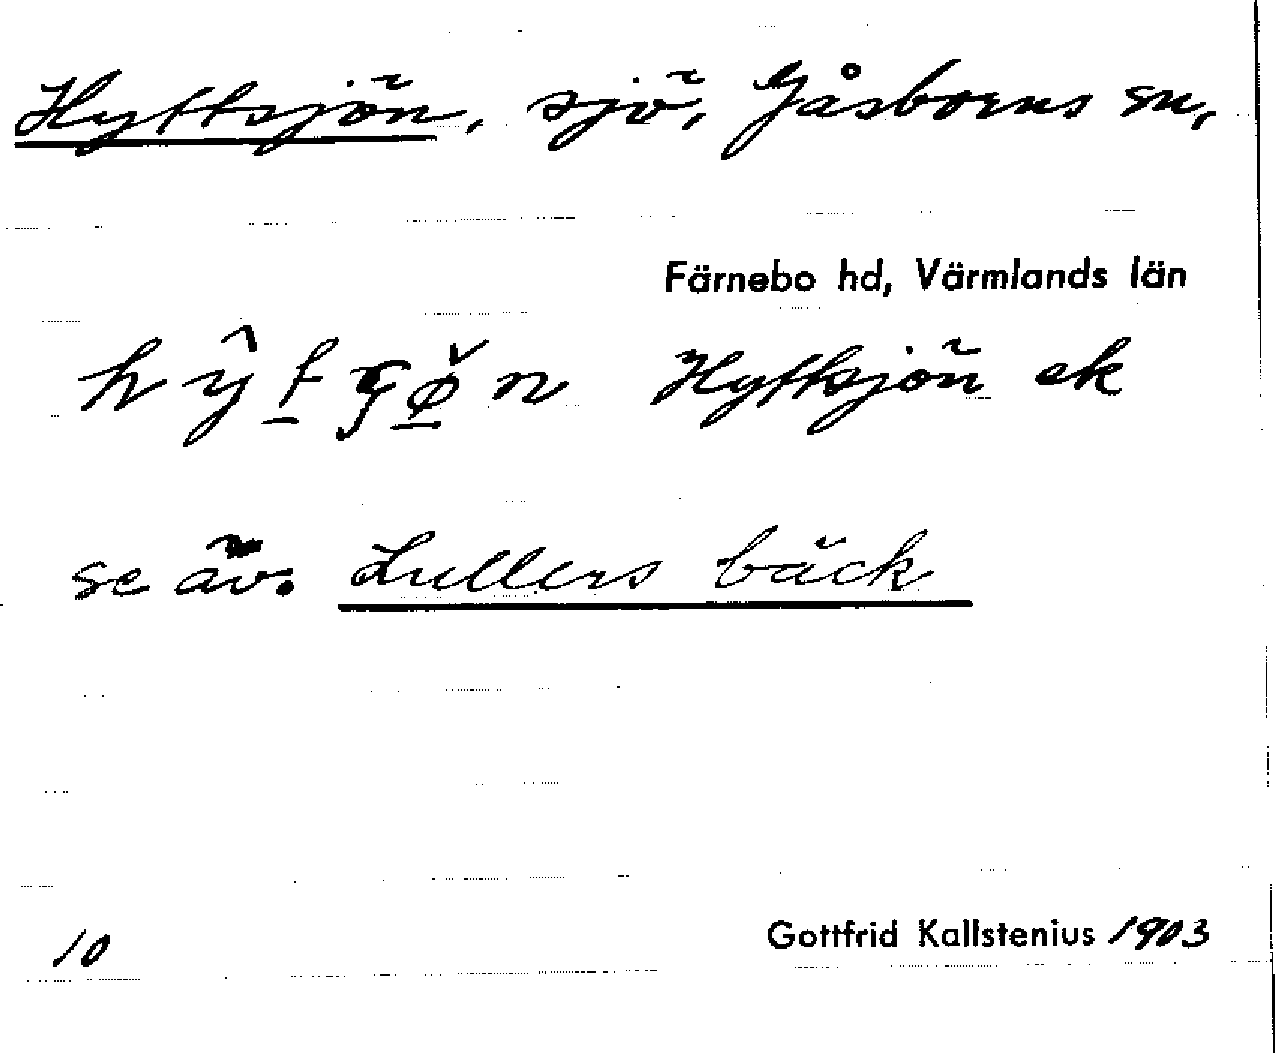 Hyttsjön, sjö, Gåsborns sn,
Färnebo hd, Värmlands län
Hyttsjön ek
se äv. Lullers bäck
10 Gottfrid Kallstenius 1903